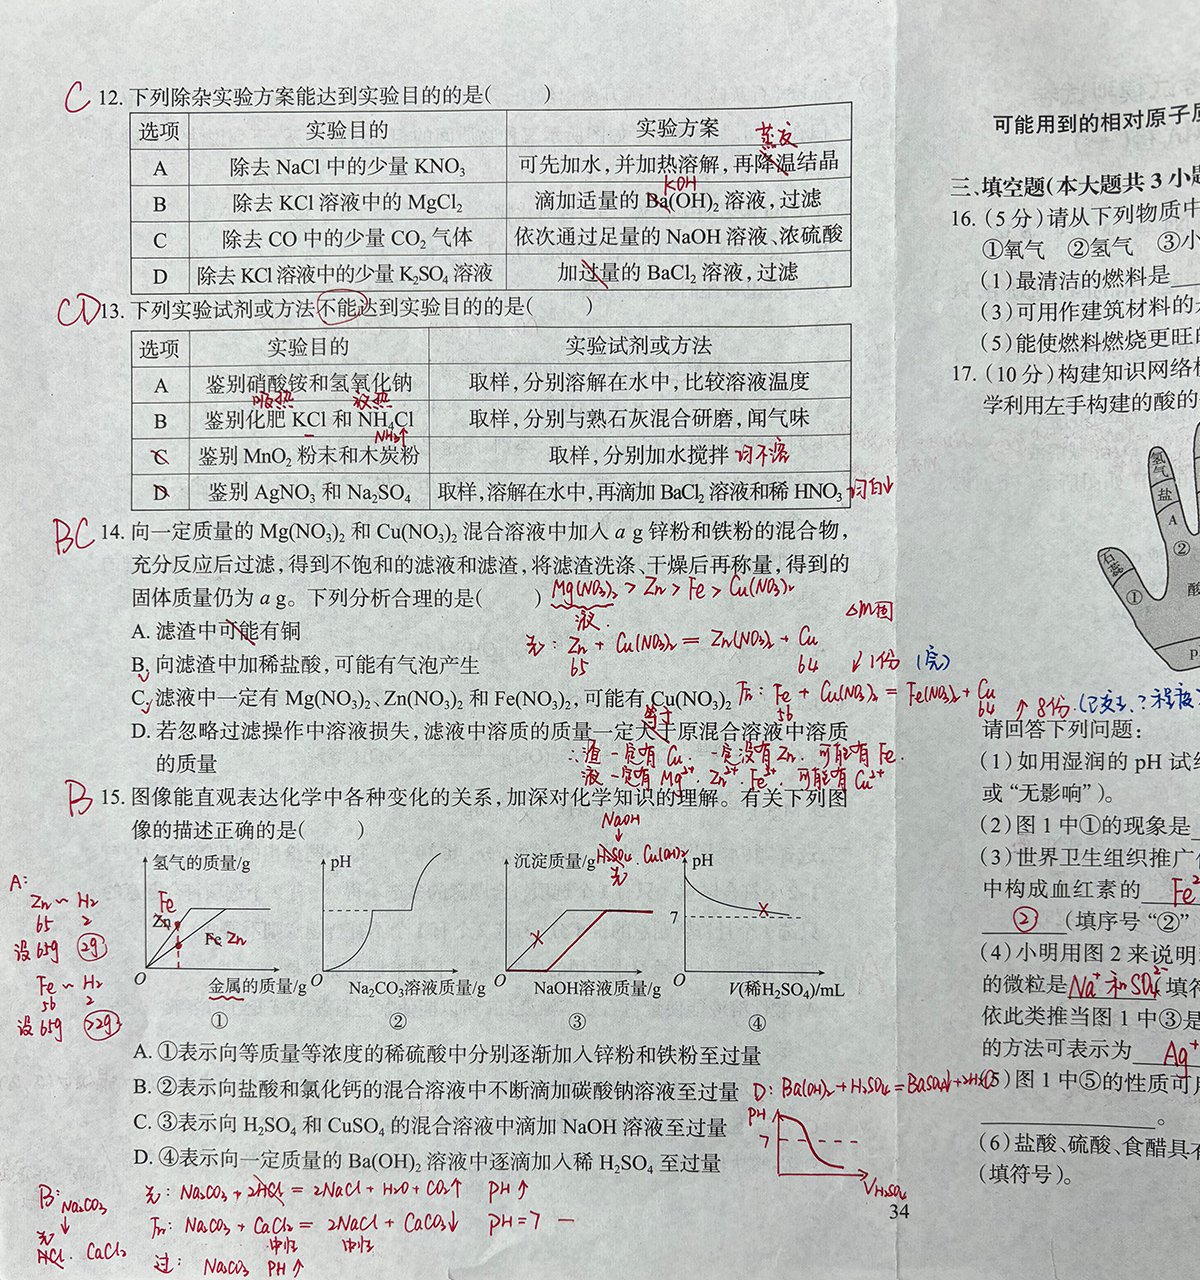 C 12. 下列除杂实验方案能达到实验目的的是(　　)
选项 实验目的 实验方案
蒸发
A 除去 NaCl 中的少量 KNO₃ 可先加水,并加热溶解,再降温结晶
KOH
B 除去 KCl 溶液中的 MgCl₂ 滴加适量的 Ba(OH)₂ 溶液,过滤
C 除去 CO 中的少量 CO₂ 气体 依次通过足量的 NaOH 溶液、浓硫酸
D 除去 KCl 溶液中的少量 K₂SO₄ 溶液 加过量的 BaCl₂ 溶液,过滤
CD 13. 下列实验试剂或方法不能达到实验目的的是(　　)
选项 实验目的 实验试剂或方法
A 鉴别硝酸铵和氢氧化钠 取样,分别溶解在水中,比较溶液温度
吸热 放热
B 鉴别化肥 KCl 和 NH₄Cl 取样,分别与熟石灰混合研磨,闻气味
NH₃↑
C 鉴别 MnO₂ 粉末和木炭粉 取样,分别加水搅拌 均不溶
D 鉴别 AgNO₃ 和 Na₂SO₄ 取样,溶解在水中,再滴加 BaCl₂ 溶液和稀 HNO₃ 均白↓
BC 14. 向一定质量的 Mg(NO₃)₂ 和 Cu(NO₃)₂ 混合溶液中加入 a g 锌粉和铁粉的混合物,
充分反应后过滤,得到不饱和的滤液和滤渣,将滤渣洗涤、干燥后再称量,得到的
固体质量仍为 a g。下列分析合理的是(　　) Mg(NO₃)₂ > Zn > Fe > Cu(NO₃)₂
液 Δm固
A. 滤渣中可能有铜 先: Zn + Cu(NO₃)₂ = Zn(NO₃)₂ + Cu
65 64 ↓1份 (完)
B. 向滤渣中加稀盐酸,可能有气泡产生
C. 滤液中一定有 Mg(NO₃)₂、Zn(NO₃)₂ 和 Fe(NO₃)₂,可能有 Cu(NO₃)₂ Fe + Cu(NO₃)₂ = Fe(NO₃)₂ + Cu
等于 56 64 ↑8份
D. 若忽略过滤操作中溶液损失,滤液中溶质的质量一定大于原混合溶液中溶质
的质量
∴渣一定有 Cu. 一定没有 Zn. 可能有 Fe.
液一定有 Mg²⁺. Zn²⁺. Fe²⁺. 可能有 Cu²⁺
B 15. 图像能直观表达化学中各种变化的关系,加深对化学知识的理解。有关下列图
像的描述正确的是(　　)
NaOH
↓
H₂SO₄. Cu(OH)₂
先
氢气的质量/g
Fe
Zn
Fe Zn
O
金属的质量/g
①
pH
O
Na₂CO₃溶液质量/g
②
沉淀质量/g
O
NaOH溶液质量/g
③
pH
7
O
V(稀H₂SO₄)/mL
④
A:
Zn ~ H₂
65 2
设65g 2g
Fe ~ H₂
56 2
设65g >2g
A. ①表示向等质量等浓度的稀硫酸中分别逐渐加入锌粉和铁粉至过量
B. ②表示向盐酸和氯化钙的混合溶液中不断滴加碳酸钠溶液至过量
C. ③表示向 H₂SO₄ 和 CuSO₄ 的混合溶液中滴加 NaOH 溶液至过量
D. ④表示向一定质量的 Ba(OH)₂ 溶液中逐滴加入稀 H₂SO₄ 至过量
D: Ba(OH)₂ + H₂SO₄ = BaSO₄↓ + 2H₂O
PH
7
V H₂SO₄
B: Na₂CO₃
↓
先
HCl. CaCl₂
先: Na₂CO₃ + 2HCl = 2NaCl + H₂O + CO₂↑ PH↑
Na₂CO₃ + CaCl₂ = 2NaCl + CaCO₃↓ PH=7 —
中性 中性
过: Na₂CO₃ PH↑
34
可能用到的相对原子
三、填空题(本大题共 3 小
16. (5 分)请从下列物质中
①氧气　②氢气　③小
(1)最清洁的燃料是
(3)可用作建筑材料的
(5)能使燃料燃烧更旺
17. (10 分)构建知识网络
学利用左手构建的酸的
氢气
盐
A
②
石蕊
①
酸
请回答下列问题:
(1)如用湿润的 pH 试
或“无影响”)。
(2)图 1 中①的现象是
(3)世界卫生组织推广
中构成血红素的
② (填序号“②”
(4)小明用图 2 来说明
的微粒是 Na⁺和SO₄²⁻ (填符
依此类推当图 1 中③是
的方法可表示为 Ag⁺
(5)图 1 中⑤的性质可
。
(6)盐酸、硫酸、食醋具
(填符号)。